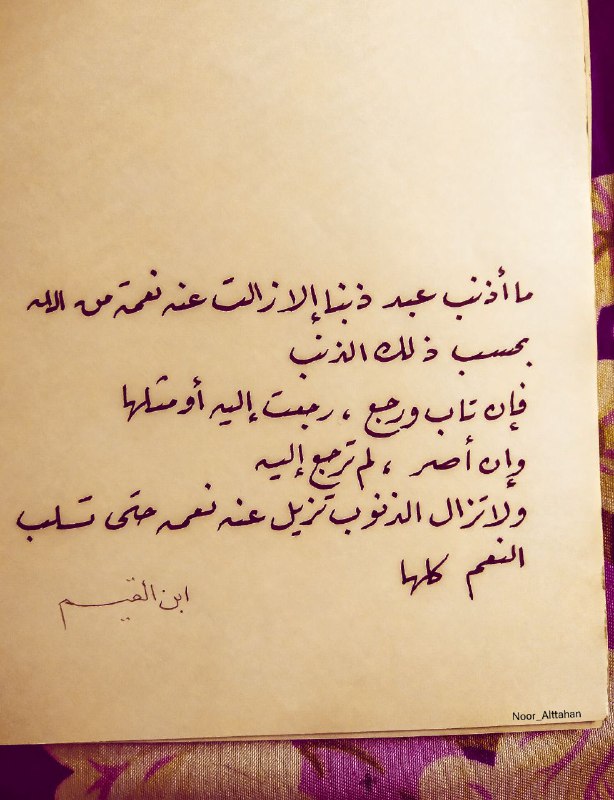 ما أذنب عبد ذنبا إلا زالت عنه نعمة من الله
بحسب ذلك الذنب
فإن تاب ورجع ، رجعت إليه أو مثلها
وإن أصر ، لم ترجع إليه
ولا تزال الذنوب تزيل عنه نعمه حتى تسلب
النعم كلها
ابن القيم
Noor_Alttahan